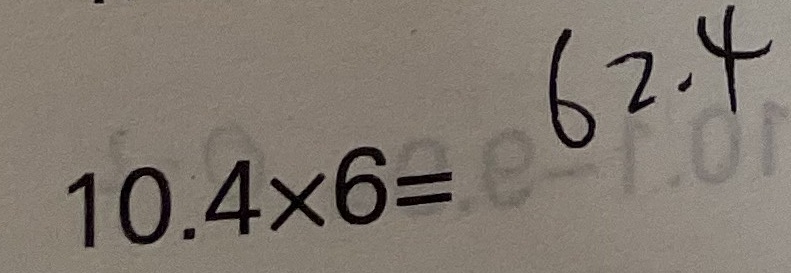 10.4×6= 62.4